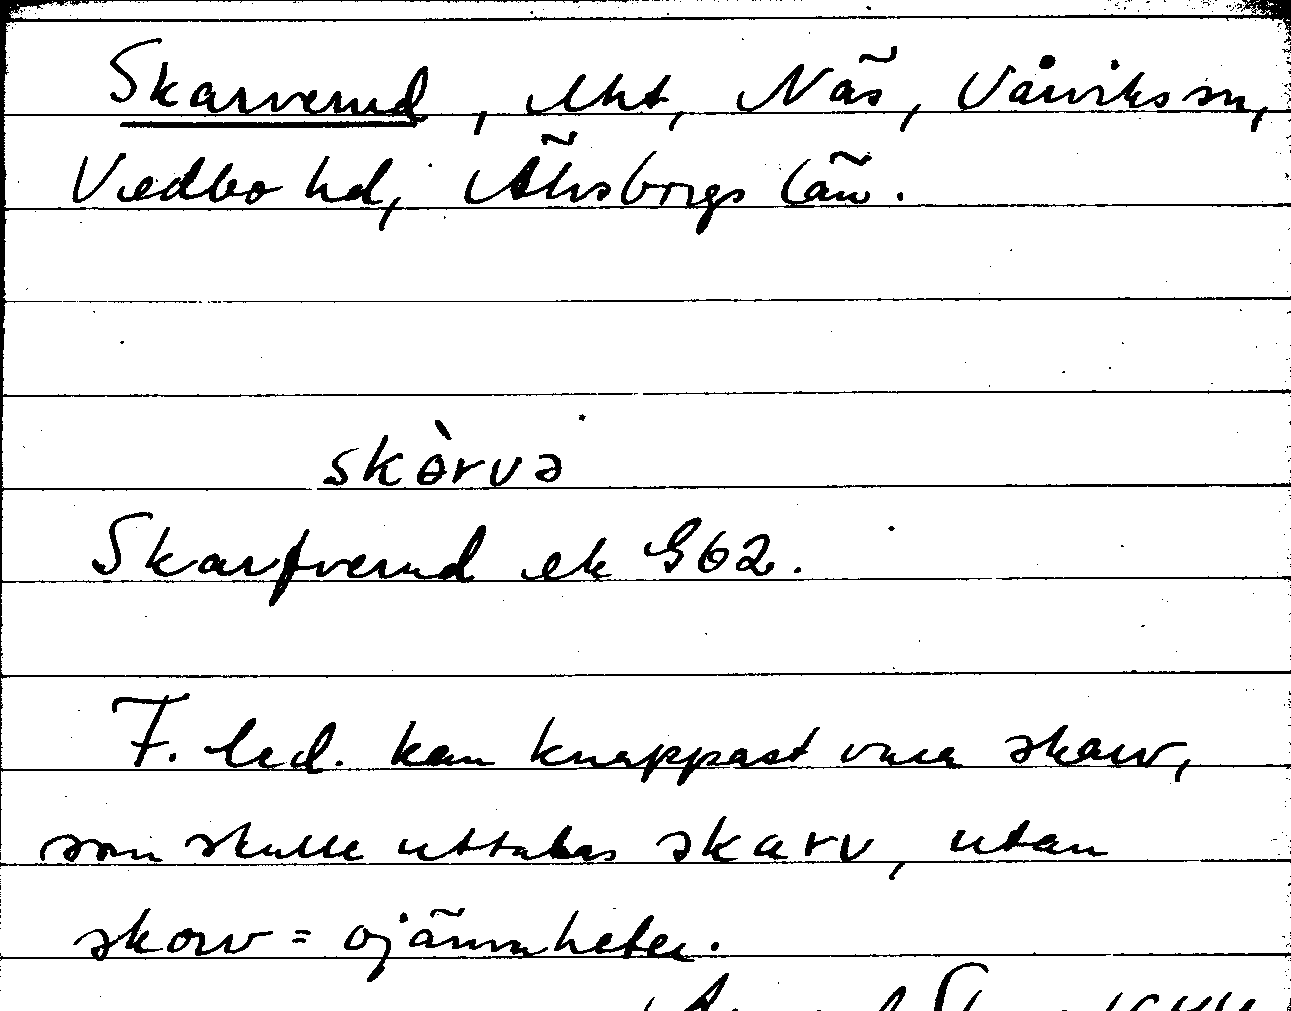 Skarverud, Uht, Näs, Vårviks sn,
Vedbo hd, Älvsborgs län.
skòrvə
Skarfverud ek G62.
F. led. kan knappast vara skarv,
som skulle uttalas skarv, utan
skorv = ojämnheter.